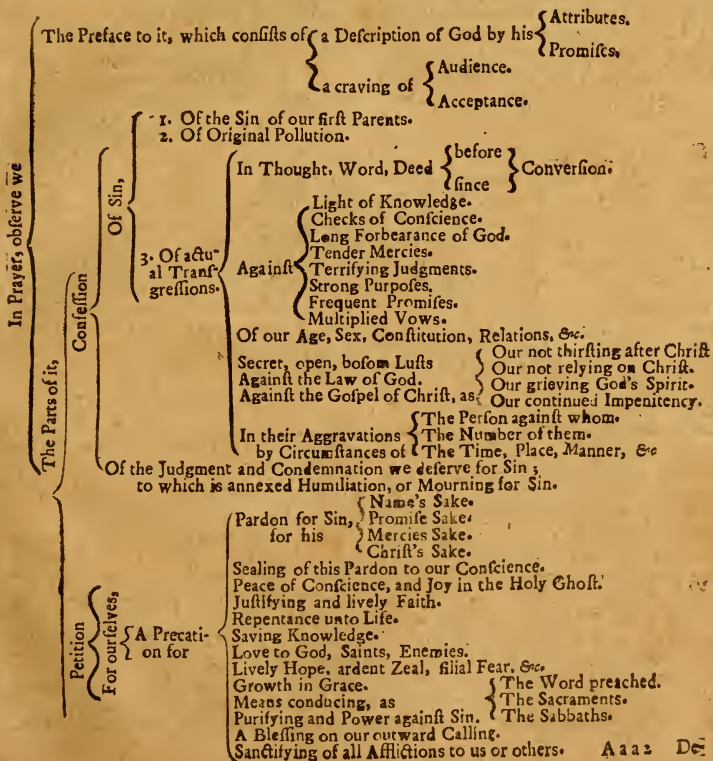 In Prayer, obſerve we
The Preface to it, which conſiſts of
a Deſcription of God by his
Attributes.
Promiſes.
a craving of
Audience.
Acceptance.
The Parts of it,
Confeſſion
Of Sin,
1. Of the Sin of our firſt Parents.
2. Of Original Pollution.
3. Of actu-
al Tranſ-
greſſions.
In Thought, Word, Deed
before
ſince
Converſion.
Againſt
Light of Knowledge.
Checks of Conſcience.
Long Forbearance of God.
Tender Mercies.
Terrifying Judgments.
Strong Purpoſes.
Frequent Promiſes.
Multiplied Vows.
Of our Age, Sex, Conſtitution, Relations, &c.
Secret, open, boſom Luſts
Againſt the Law of God.
Againſt the Goſpel of Chriſt, as
Our not thirſting after Chriſt
Our not relying on Chriſt.
Our grieving God's Spirit.
Our continued Impenitency.
In their Aggravations
by Circumſtances of
The Perſon againſt whom.
The Number of them.
The Time, Place, Manner, &c
Of the Judgment and Condemnation we deſerve for Sin ;
to which is annexed Humiliation, or Mourning for Sin.
Petition
For ourſelves,
A Precati-
on for
Pardon for Sin,
for his
Name's Sake.
Promiſe Sake.
Mercies Sake.
Chriſt's Sake.
Sealing of this Pardon to our Conſcience.
Peace of Conſcience, and Joy in the Holy Ghoſt.
Juſtifying and lively Faith.
Repentance unto Life.
Saving Knowledge.
Love to God, Saints, Enemies.
Lively Hope, ardent Zeal, filial Fear, &c.
Growth in Grace.
Means conducing, as
The Word preached.
The Sacraments.
The Sabbaths.
Purifying and Power againſt Sin.
A Bleſſing on our outward Calling.
Sanctifying of all Afflictions to us or others.
A a a 2 De